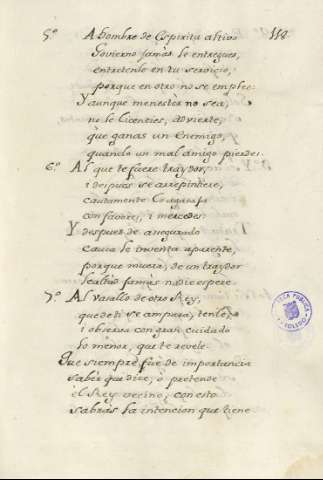 118
5.º A hombre de Espiritu altivo
Govierno jamás le entregues,
entretenle en tu servicio,
porque en otro no se emplee:
Y aunque menester no sea,
no le licencies, advierte,
que ganas un enemigo,
quando un mal amigo pierdes.
6.º Al que te fuere traydor,
i despues se arrepintiere,
cautamente le agasaja
con favores, i mercedes:
Y despues de asegurado
causa le inventa aparente,
porque muera, de un traydor
lealtad jamàs nadie espere.
7.º Al vasallo de otro Rey,
que de ti se ampara, tenle,
i observa con gran cuidado
lo menor, que te revele.
Que siempre fue de importancia
saber que dice, o pretende
el Rey vecino, con esto
sabràs la intencion que tiene
PUBLICA
TOLEDO